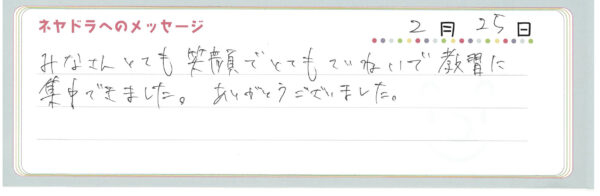 ネヤドラへのメッセージ
2月25日
みなさんとても笑顔でとてもていねいで教習に
集中できました。ありがとうございました。